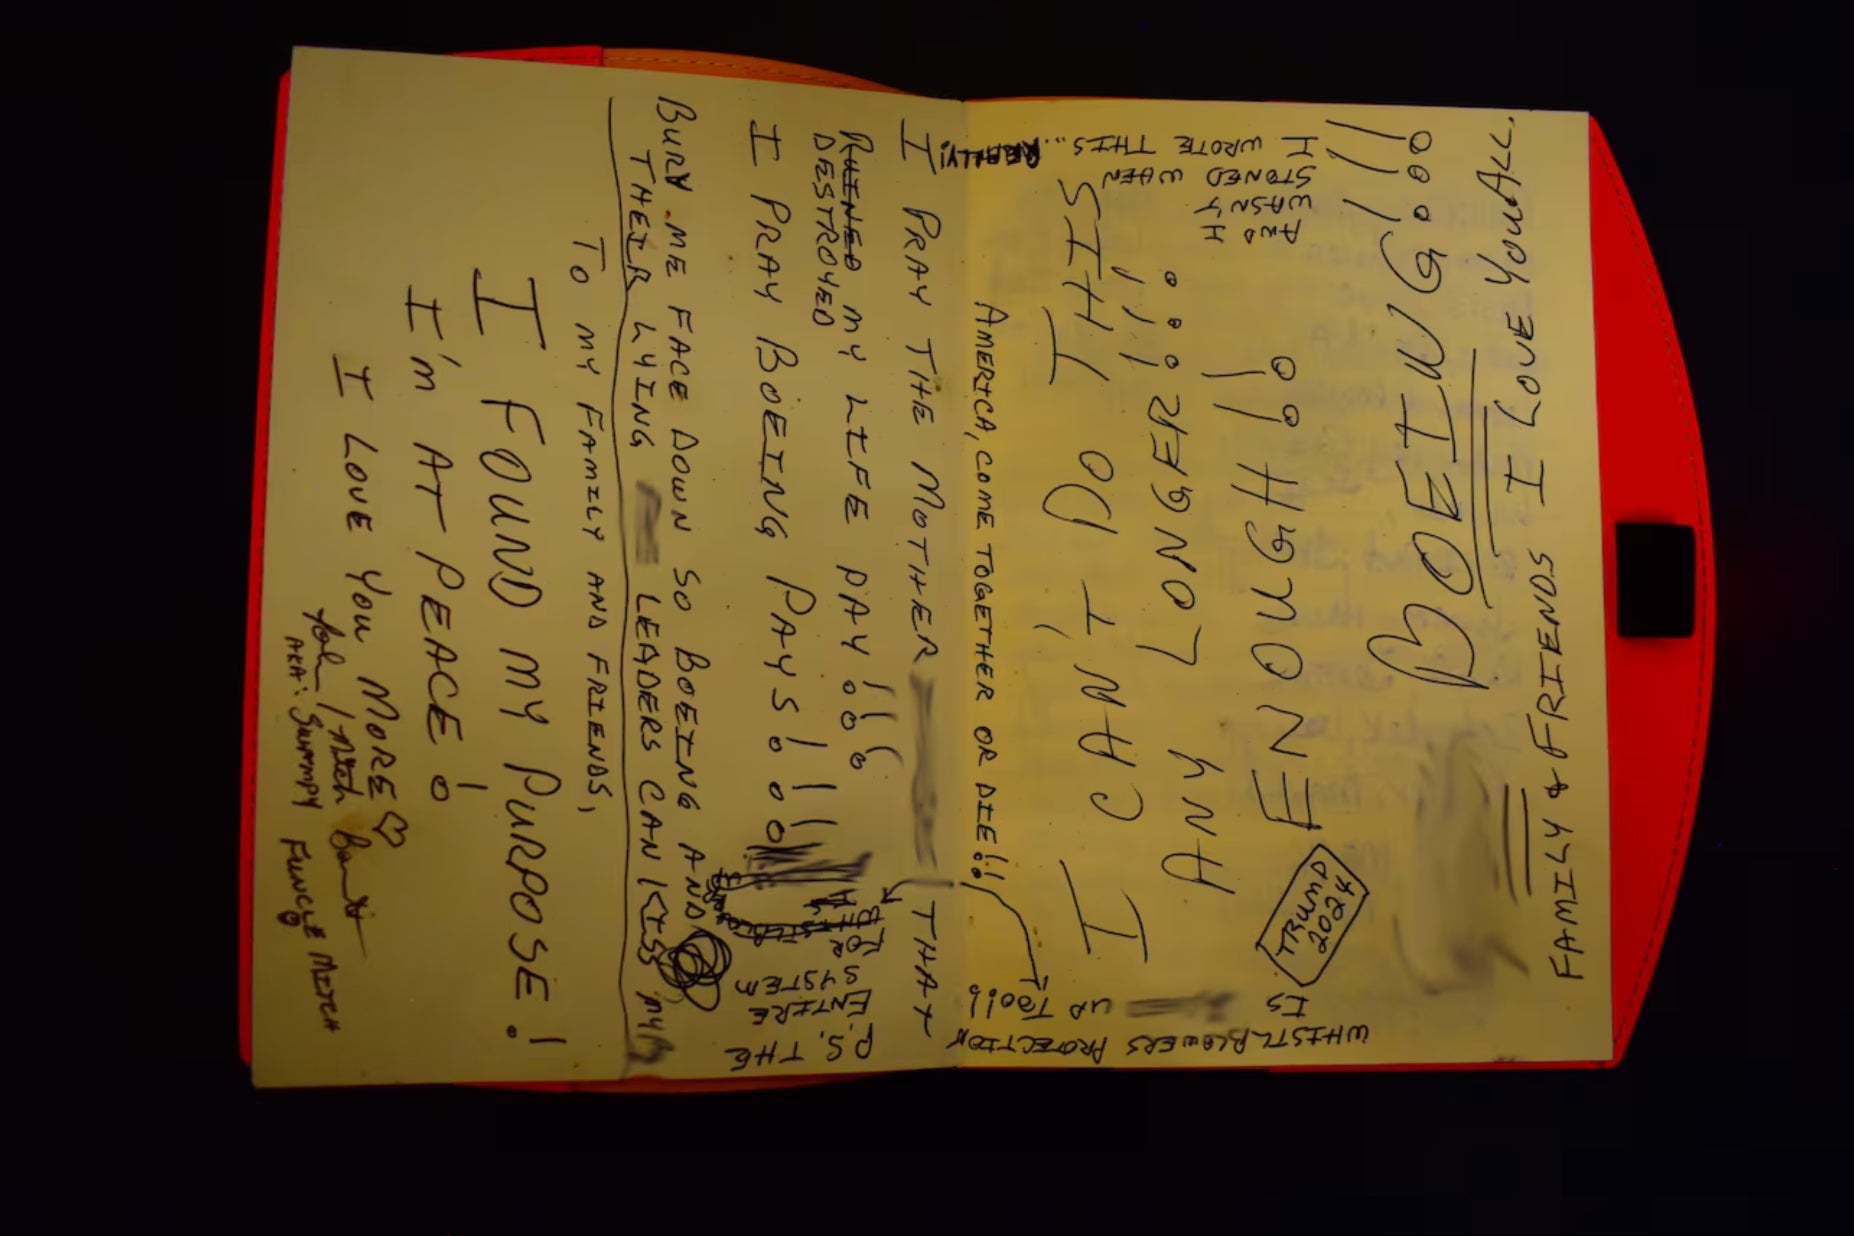 FAMILY & FRIENDS I LOVE YOU ALL.
BOEING!!!
TRUMP
2024
ENOUGH!!
ANY LONGER!!!
I CAN'T DO THIS
I
AND I
WASN'T
STONED WHEN
I WROTE THIS... REALLY!
WHISTLBLOWERS PROTECTION
IS
UP TOO!!
AMERICA, COME TOGETHER OR DIE!!
I PRAY THE MOTHER THAT
RUINED MY LIFE PAY!!!
DESTROYED
I PRAY BOEING PAYS!!!
BURY ME FACE DOWN SO BOEING AND
THEIR LYING LEADERS CAN KISS MY
P.S. THE
ENTIRE
SYSTEM
FOR
TO MY FAMILY AND FRIENDS,
I FOUND MY PURPOSE!
I'M AT PEACE!
I LOVE YOU MORE♡
AKA: SWAMPY FUNCLE MITCH